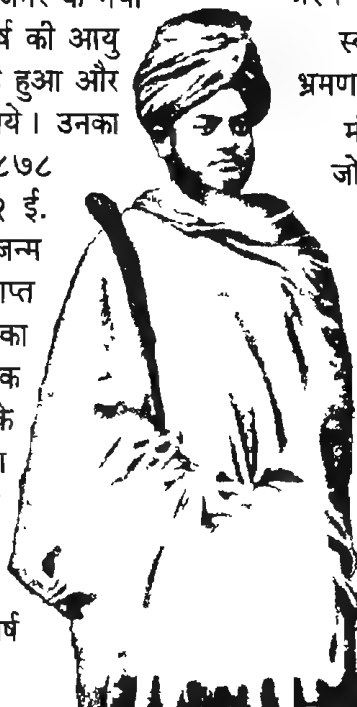 र्ष की आयु
हुआ और
ये । उनका
८७८
ई.
जन्म
प्त
का
क
के
र्ष
स्व
भ्रमण
जो